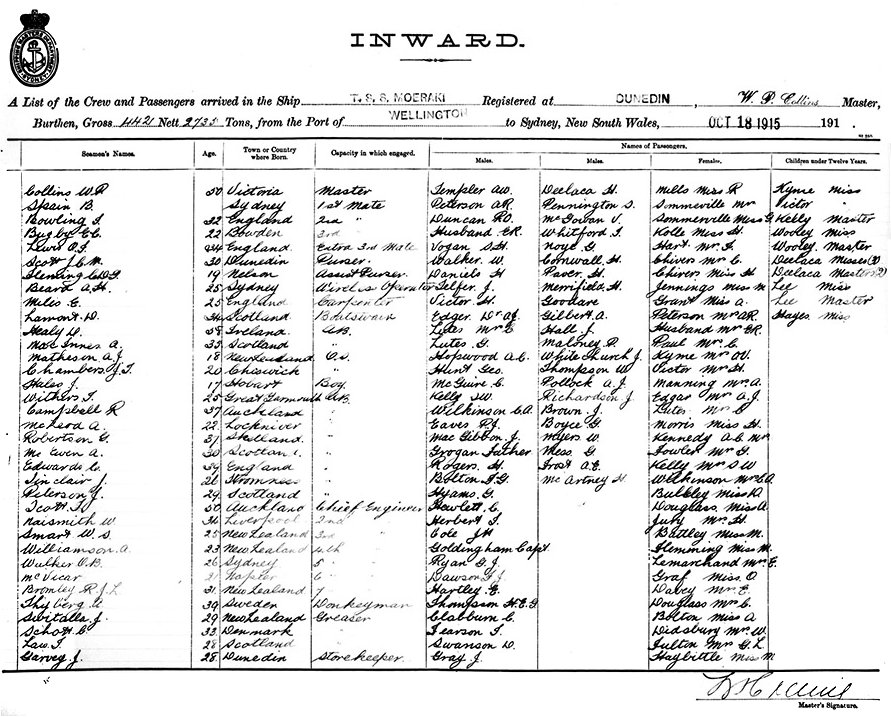 INWARD.
A List of the Crew and Passengers arrived in the Ship T. S. S. MOERAKI Registered at DUNEDIN, W. P. Collins Master,
Burthen, Gross 4421 Nett 2735 Tons, from the Port of WELLINGTON to Sydney, New South Wales, OCT 18 1915 191 .
Names of Passengers.
Seamen's Names. Age. Town or Country where Born. Capacity in which engaged. Males. Males. Females. Children under Twelve Years.
Collins W.P 50 Victoria Master Templer AW. Deelaca H. Mills Miss R Kyme Miss
Spain B. Sydney 1st Mate Peterson A.R. Pennington S. Sommerville Mr Victor "
Bowling J. 32 England 2nd " Duncan R.O. McGowan V. Sommerville Miss G Kelly Master
Bugby E.C. 22 Bowden 3rd " Husband E.R. Whitford J. Kolle Miss H Wooley Miss
Lewis O.J. 24 England Extra 3rd Mate Vogan S.H. Noye G. Hart Mr J. Wooley Master
Scott J.C.M. 30 Dunedin Purser. Walker W. Cornwall H. Chivers Mr C. Deelaca Misses (3)
Flemming C.W.G 19 Nelson Assist Purser. Daniels H Paver H. Chivers Miss H Deelaca Masters (2)
Beard A.H. 25 Sydney Wireless Operator Telfer J. Merrifield H. Jennings Miss M Lee Miss
Miles G. 25 England Carpenter Victor H. Goodare Grant Miss A. Lee Master
Lamont D. 34 Scotland Boatswain Edger Dr A.J. Gilbert A. Peterson Mr A.R Hayes Miss
Healy D. 58 Ireland. A.B. Lutes Mr C Hall J. Husband Mr E.R.
MacInnes A. 35 Scotland " Lutes G. Maloney P. Paul Mr C.
Matheson A.J 18 New Zealand O.S. Hopwood A.C. White Church J. Kyme Mr O.V.
Chambers J.T. 20 Chiswick " Hunt Geo. Thompson W. Victor Mr H.
Hales J. 17 Hobart Boy. McGuire C Pollock A.J. Manning Mr A.
Withers T. 25 Great Yarmouth A.B. Kelly S.W. Richardson J. Edgar Mr A.J.
Campbell R 37 Auckland " Wilkinson C.A. Brown J. Luter Mr C
McLeod A. 22 Lochniver " Eaves P.J. Boyce G. Morris Miss H.
Robertson G. 37 " MacGibbon J. Myers W. Kennedy A.C. Mr
McEwen A. 30 Scotland. " Grogan Father Mess. G. Fowler Mr G.
Edwards C. 39 England " Rogers. H. Frost A.E. Kelly Mr S W
Sinclair J. 26 Stromness " Bolton F.G. McArtney H. Wilkinson Mr C.A
Peterson J. 29 Scotland " Hyams. G. Bulkley Miss D.
Scott T. 50 Auckland Chief Engineer Hewlett C. Douglass Miss A
Naismith W. 34 Liverpool 2nd " Herbert T. Jury Mr H.
Smart W.S. 25 New Zealand 3rd " Cole J H Battley Miss M.
Williamson A. 23 New Zealand 4th " Goldingham Capt. Flemming Miss M.
Walker O.B. 26 Sydney 5 " Ryan G.J Lemarchand Mr E.
McVicar 31 Napier 6 " Dawson J.J Graf Miss O.
Bromley R.J.L 31 New Zealand 7 " Hartley E. Davey Mr E
Thyberg A 39 Sweden Donkeyman Thompson H.E.G Douglass Mr C.
Switalla J. 29 New Zealand Greaser Clabburn C. Bolton Miss A
Schott C 33 Denmark " Fearson T. Didsbury Mr W.
Law T. 28 Scotland " Swanson D. Fulton Mr G.L
Garvey J. 28 Dunedin Storekeeper. Gray J. Haybittle Miss M
Master's Signature.